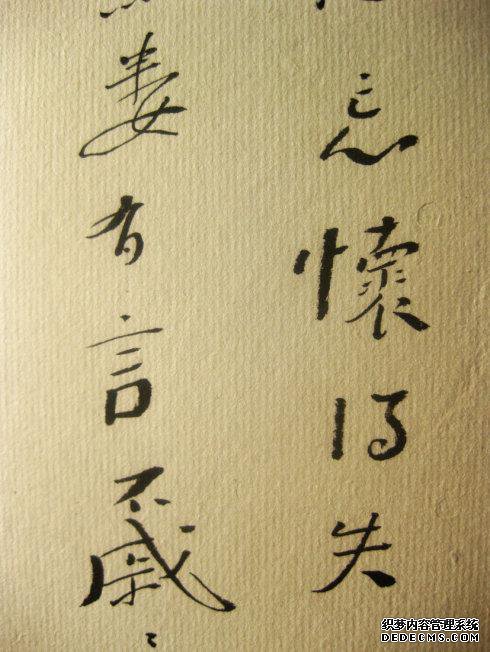 忘懷得失
婁有言不戚〻
织梦内容管理系统
DEDECMS.COM